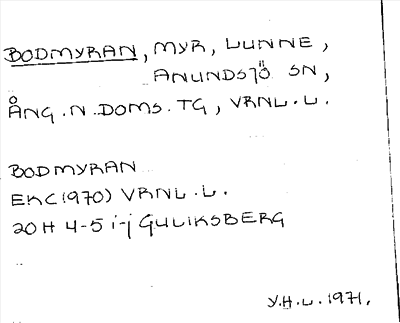 BODMYRAN, MYR, LUNNE,
ANUNDSJÖ SN,
ÅNG.N.DOMS.TG, VRNL.L.
BODMYRAN
EKC(1970) VRNL.L.
20H 4-5 i-j GULIKSBERG
Y.H.L. 1971.